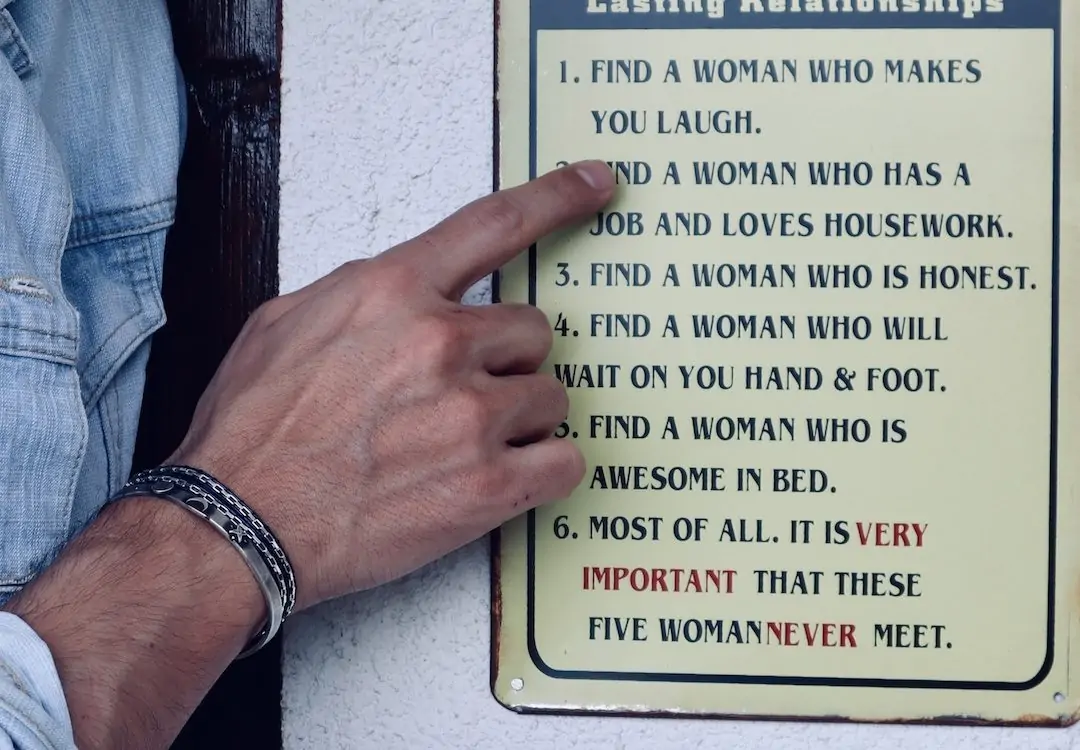 Lasting Relationships
1. FIND A WOMAN WHO MAKES
YOU LAUGH.
2. FIND A WOMAN WHO HAS A
JOB AND LOVES HOUSEWORK.
3. FIND A WOMAN WHO IS HONEST.
4. FIND A WOMAN WHO WILL
WAIT ON YOU HAND & FOOT.
5. FIND A WOMAN WHO IS
AWESOME IN BED.
6. MOST OF ALL. IT IS VERY
IMPORTANT THAT THESE
FIVE WOMAN NEVER MEET.